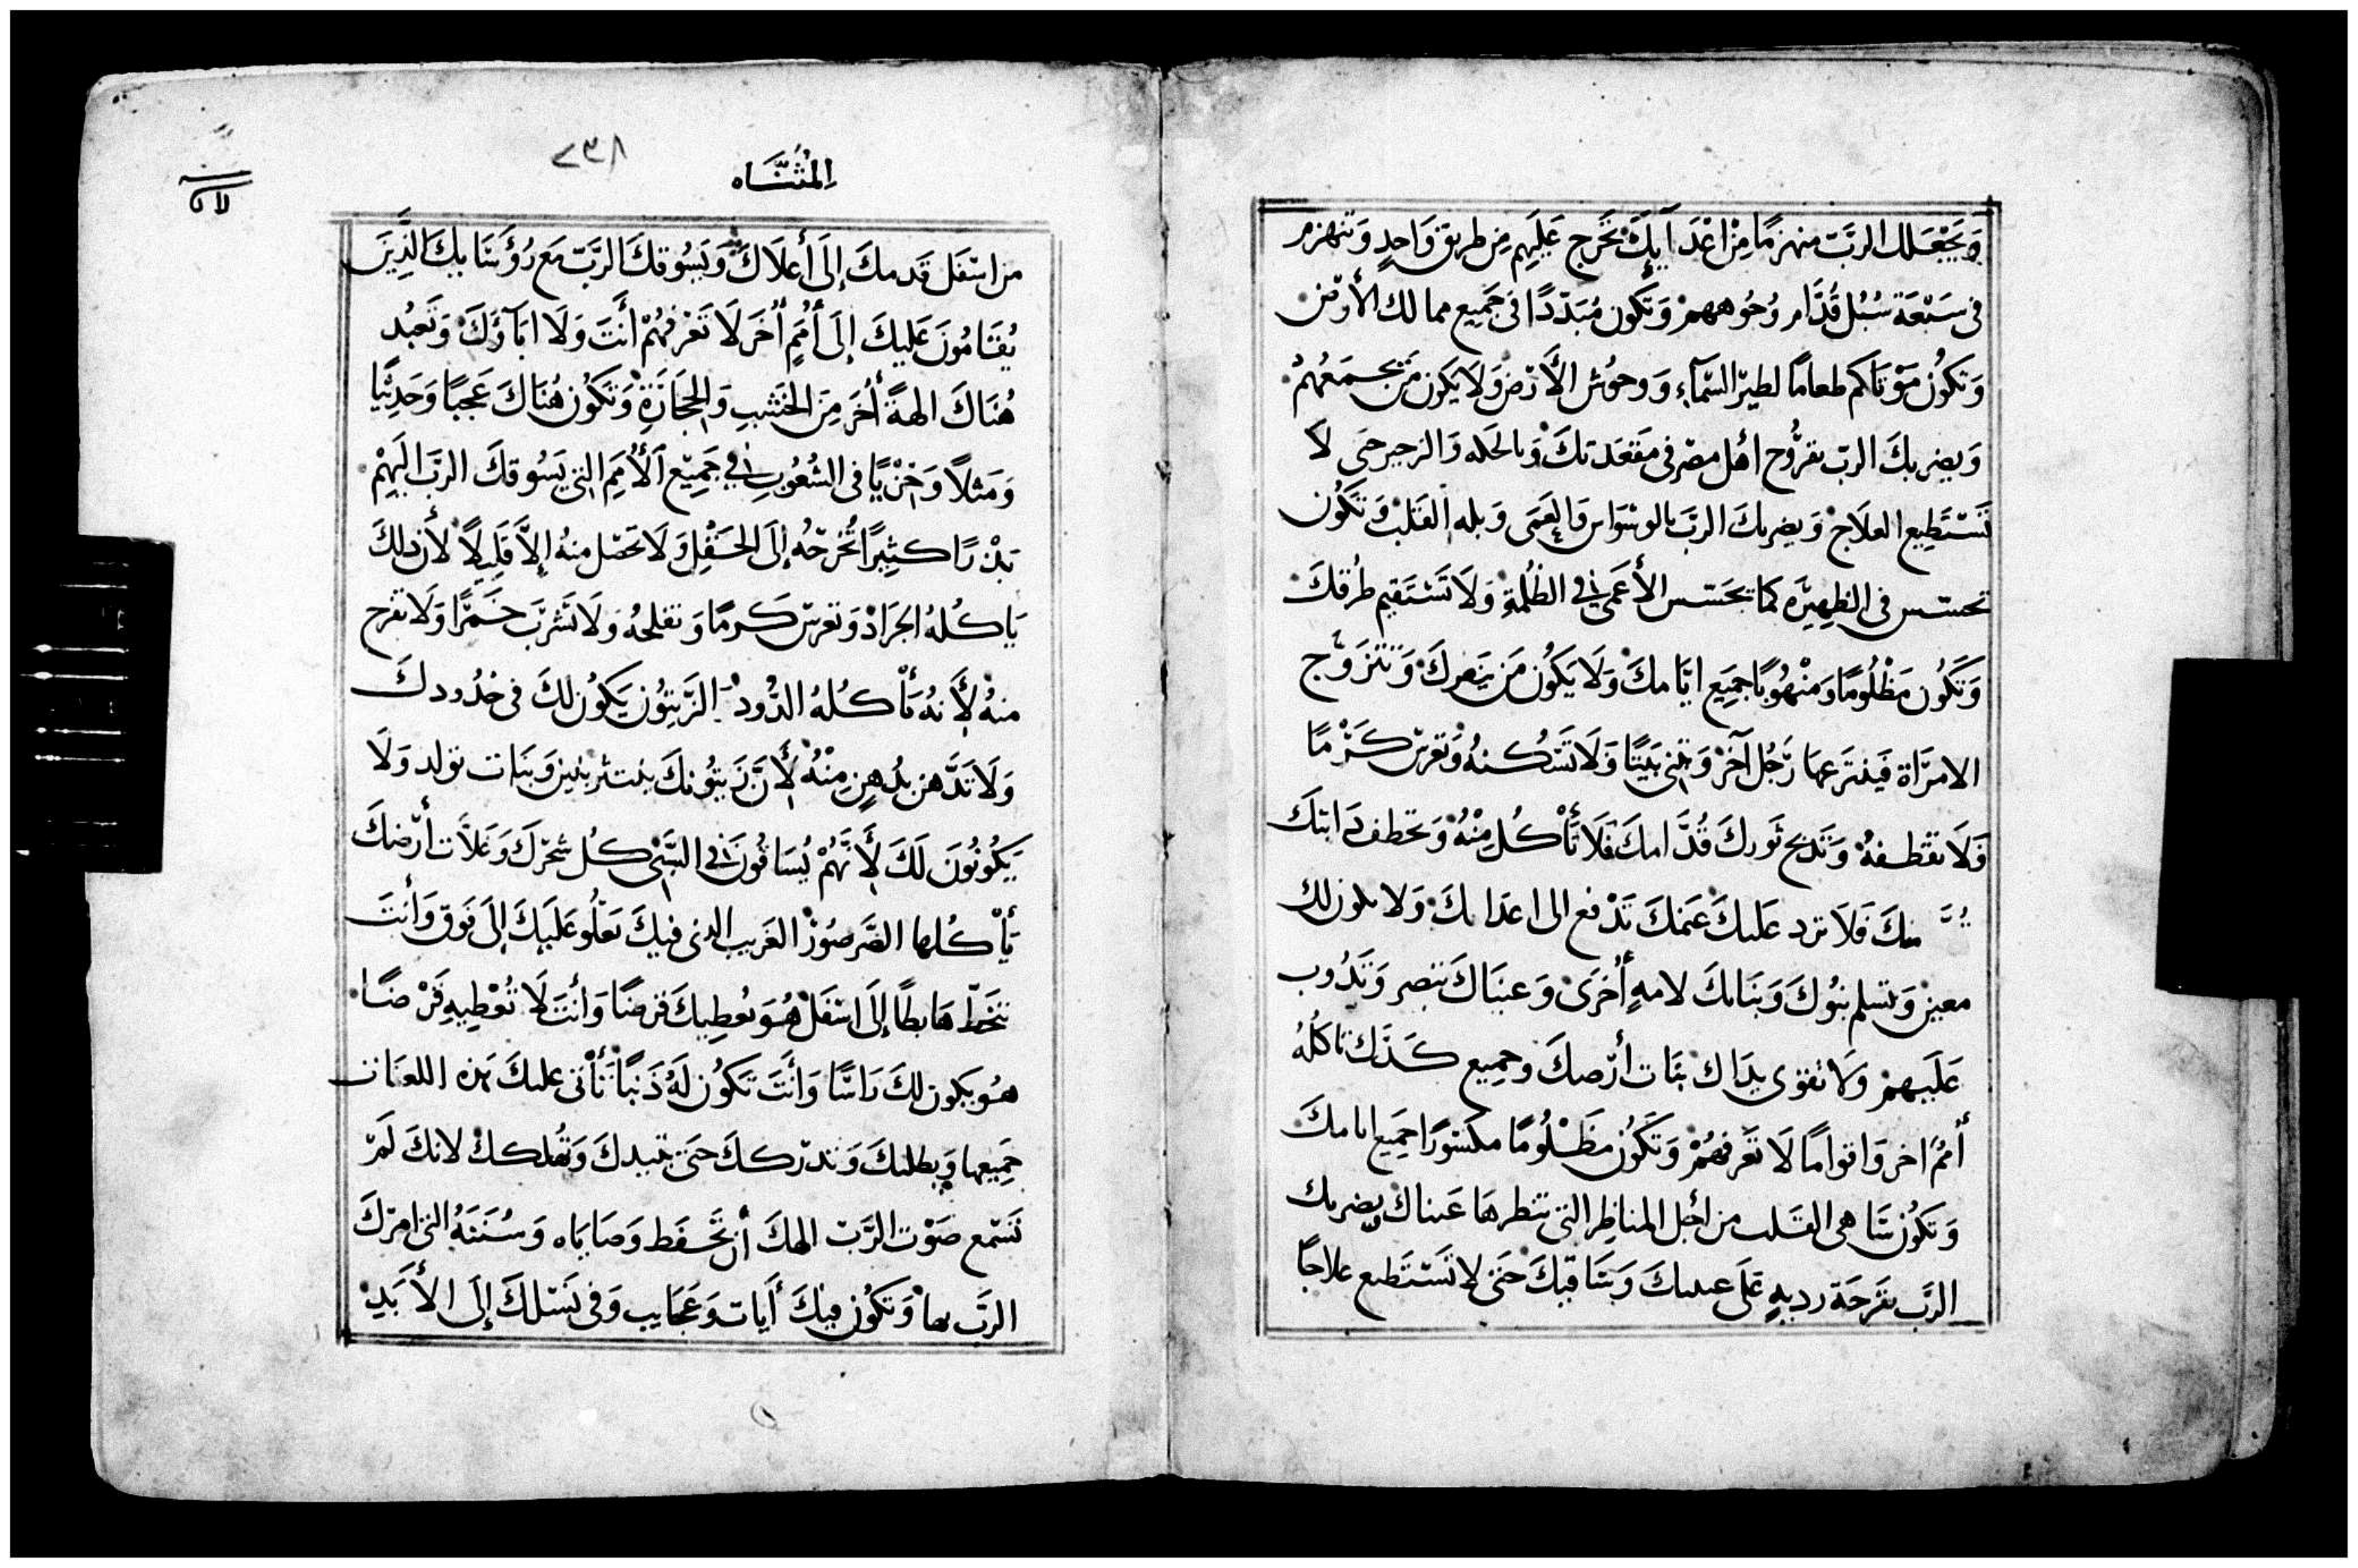 وَيَجْعَلك الربّ منهزمًا مِنْ اعْدَآيِكَ تَخَرج عَلَيهِم مِن طريق وَاحدٍ وَتنهزم
فى سَبْعَة سُبُل قُدَّام وُجُوههمْ وَتَكون مُبَدّدًا فى جَميع ممالك الأرض
وَتكُون مَوْتاكم طعامًا لطير السّمآءِ وَوحُوش الأَرْضِ وَلَا يَكون مَن يجمَعُهمْ
وَيضربكَ الربّ بقرُّوح اهل مصْر فى مَقعَدتكَ وَبالحكه وَالزحير حتى لَا
تَسْتَطِيع العلَاجْ وَيضربكَ الربّ بالوسْوَاس وَالعَمَى وَبله القَلبْ وَتَكُون
تحسّس فى الظهِيرَه كما تحَسّس الأعَمى فى الظُلمةِ وَلَا تَسْتَقيم طُرقكَ
وَتَكُون مَظْلُومًا وَمنْهُوبًا جَمِيَع ايَّامكَ وَلَا يَكُون مَن يَنصركَ وَتتزَوَّج
الامرَاة فَينتَرعها رَّجُل آخَرْ وَتبنى بَيتًا وَلَا تَسْكنهُ وَتغرسْ كَرْمًا
فَلَا تقطفهُ وَتَذبح ثَوركَ قُدَّامكَ فَلَا تَأْكُل مِنْهُ وَتخطف دَابتكَ
منكَ فَلَا ترد عَليكَ غنمكَ تَدْفع الى اعدَايكَ وَلا يكون لك
معين وَتسلم بنُوكَ وَبَنَاتكَ لامهٍ أُخرَى وَعينَاكَ تنصر وَتَذُوب
عَلَيهمْ وَلَا تقوى يدَاك نبَات أرْضكَ وجميع كَدَّكَ تاكلُهُ
أمُمٌ اخر وَاقوامًا لَا تَعرفهمْ وَتَكُون مَظْلُومًا مكسُورًا جَمِيع ايامكَ
وَتَكُون سَاهى القَلب من اجْل المناظِر التى تنظرهَا عَيناكَ يضربك
الربّ بقَرحَة رديهٍ عَلَى عينيكَ وَسَاقيكَ حَتى لا تَسْتَطيع علاجًا
المُثنَّاه
٢٣٨
من اسْفَل قَدمكَ إلَى أعلَاكَ وَيَسُوقكَ الربّ مَع رُؤسَايكَ الَّذِينَ
يُقَامُونَ عَليكَ إلَى أُمَمٍ أُخَر لَا تَعْرفهُمْ أَنتَ وَلَا ابَآؤكَ وَتَعبُد
هُنَاكَ الهةً أُخَر مِنَ الخشَبِ وَالحِجَارَةِ وَتكُون هُنَاكَ عَجبًا وَحَديْثًا
وَمَثلاً وَخزْيًا فى الشُعُوبِ فى جَمِيْع ألأُمَمِ التى يَسُوقكَ الربّ اليَهِمْ
بَذْرًا كثِيرًا تُخْرجُه إلَى الحَقْلِ وَلَا تحَصّل منهُ إلاَّ قَلِيلاً لأَن ذلكَ
يَاكُلهُ الجَرَادْ وَتغرسْ كَرمًا وَتفلحُهُ وَلَا تَشربَ خَمرًا وَلَا تفرح
منهُ لأَنهُ تَأْكُلهُ الدُّودْ الزَيتُون يَكُون لكَ فى حُدُودكَ
وَلَا تَدَّهن بدُهنٍ مِنْهُ لأَنَّ زَيتُونكَ ينتثر بنين وَبنَات تولد وَلَا
يَكُونُونَ لَكَ لأَنَّهُمْ يُسَاقُونَ فى السَّبْى كُل شجَركَ وَغلَّات أرْضكَ
يَأْكُلها الصَّرصُورْ الغَريب الذى فيكَ يَعْلُو عَلَيكَ إلَى فَوق وَأنتَ
تنحَطّ هَابطًا إلَى اسْفَلْ هُوَ يُعطيكَ قَرضًا وَأنتَ لَا تُعْطِيهِ قَرْضًا
هُو يكون لكَ رَاسًا وَأنتَ تَكُون لَهُ ذَنبًا تَأتى عليكَ هَذه اللعنات
جَميعها وَيطلبكَ وَتدرككَ حتى تبيدكَ وَتُهلككْ لانكَ لَمْ
تَسْمع صَوْت الرَّبّ الهكَ أن تَحْفَظ وَصَايَاه وَسُنَنهُ التى امركَ
الربّ بها وَتَكُون فيكَ أَيات وَعَجَايب وَفى نَسْلكَ إلَى الأَبَدِ